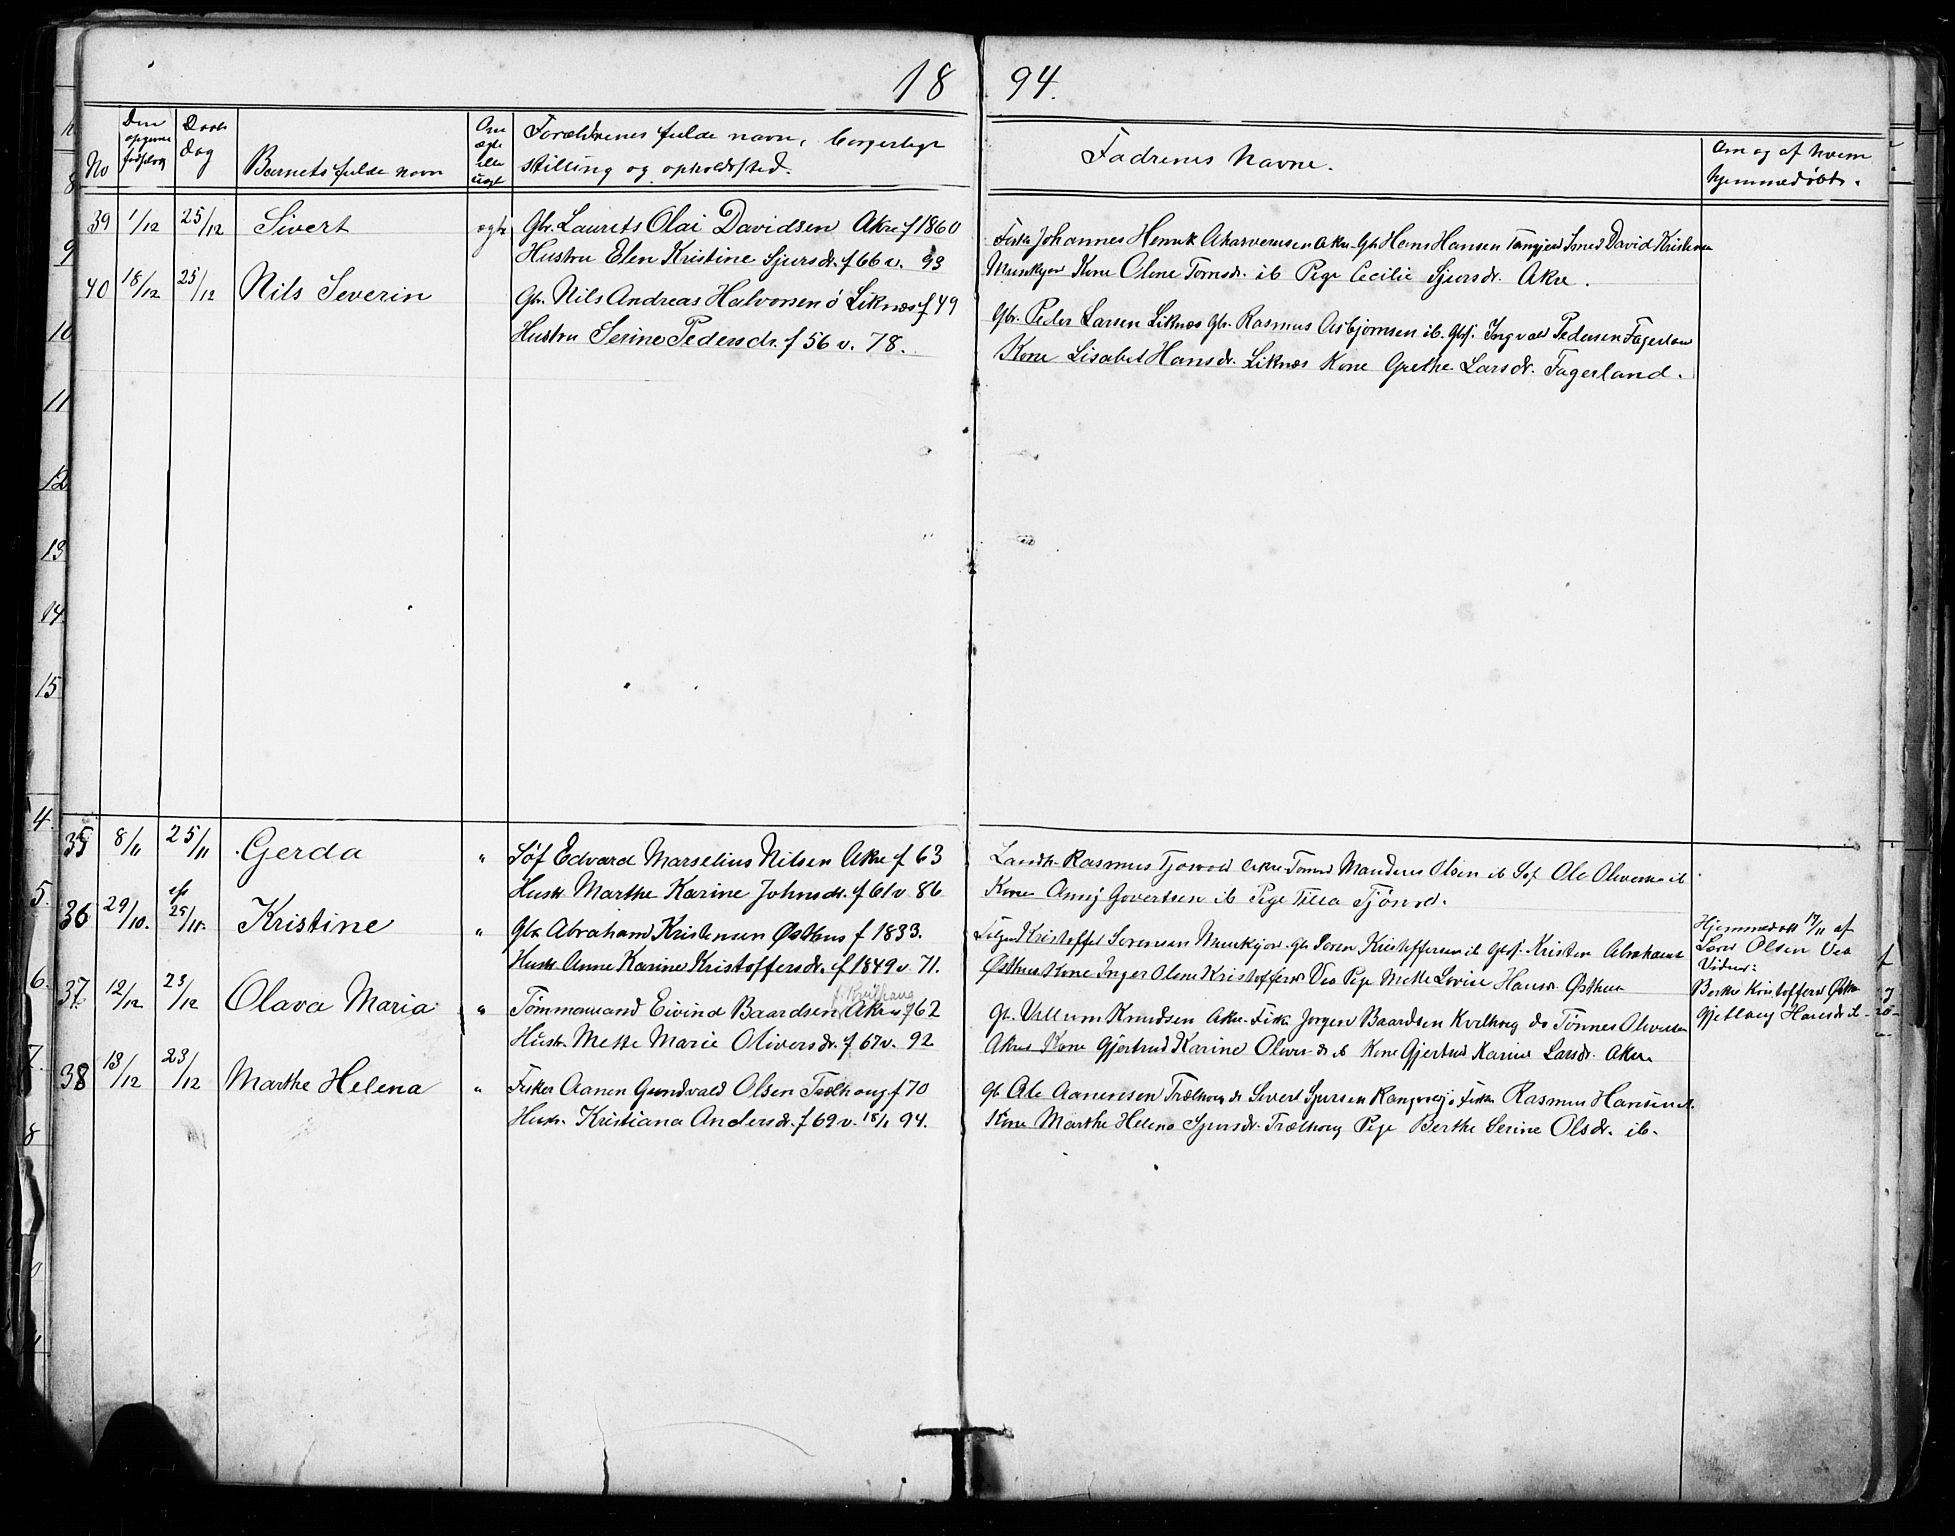 18 94.
No
Den opgivne fødselsdag
Daabs dag
Barnets fulde navn
Om ægte eller uægt
Forældrenes fulde navn, borgerlige
stilling og opholdssted.
Fadrenes Navne.
Om og af hvem
hjemmedøbt.
39 1/12 25/12 Sivert ægte Gbr. Laurets Olai Davidsen Akre f 1860
Hustru Elen Kristine Sjursdr. f 66 v. 93
Fisk Johannes Henrik Ahasverusen Akre Gb Hans Hansen Smed David Kristensen
Munkejor Kone Olene Tomsdr. ib Pige Cecilie Sjursdr. Akre.
40 18/12 25/12 Nils Severin Gbr. Nils Andreas Halvorsen ö Liknes f 49
Hustru Serine Pedersdr. f 56 v. 78.
Gbr. Peder Larsen Liknes Gbr. Rasmus Asbjørnsen ib. Gbsf. Ingvald Pedersen Fagerland
Kone Lisabet Hansdr. Liknes Kone Grethe Larsdr. Fagerland.
35 8/11 25/11 Gerda " Søf Edvard Marselius Nilsen Akre f 63
Hustr Marthe Karine Johnsdr. f 61 v 86
Landh. Rasmus Tjøsvold Akre Tømrd Mandrus Olsen ib Søf Ole Oliversen ib
Kone Anny Govertsen ib Pige Tilla Tjösvol.
36 29/10. 25/11. Kristine " Gbr. Abraham Kristensen Østhus f 1833.
Hustr Anne Karine Kristoffersdr. f 1849 v. 71.
Kristoffer Sørensen Munkejor Gb Søren Kristoffersen ib Gbsf. Kristen Abrahamsen
Østhus Kone Inger Olene Kristoffersd Vea Pige Mette Lovise Hansdr Østhus
Hjemmedøbt 17/11 af
Lars Olsen Vea
Vidner:
Berthe Kristoffersd Østhus
Gjetborg Hansdr ib
37. 12/12 23/12 Olava Maria " Tömmermand Eivind Baardsen Akre f 62
f. Kvilhaug
Hustr. Mette Marie Oliversdr. f 67 v. 92
Gb. Villum Knudsen Akre Fisk Jørgen Baardsen Kvilhoug do Tønnes Oliversen
Akre Kone Gjertrud Karine Olivers dr ib Kone Gjertrud Karine Larsdr. Akre
38 13/12 23/12 Marthe Helena " Fisker Aanen Gundvald Olsen Trælhoug f 70
Hustr. Kristiana Andersdr. f 69 v. 15/1 94.
Gb Ole Aanensen Trælhoug do Sivert Sjursen Fisk Rasmus Hansen ib.
Kone Marthe Helene Sjursdr. Trælhoug Pige Berthe Serine Olsdr. ib.
8
9
10
11
12
13
14
15
4.
5.
6.
7.
8